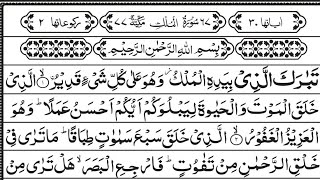 اٰیاتها ٣٠ ٦٧ سُوْرَةُ الْمُلْكِ مَكِّيَّةٌ ٧٧ رکوعاتها ٢
بِسْمِ اللّٰهِ الرَّحْمٰنِ الرَّحِيْمِ
تَبٰرَكَ الَّذِيْ بِيَدِهِ الْمُلْكُ ؗ وَهُوَ عَلٰى كُلِّ شَيْءٍ قَدِيْرُ ۨ ۙ ١ الَّذِيْ
خَلَقَ الْمَوْتَ وَالْحَيٰوةَ لِيَبْلُوَكُمْ اَيُّكُمْ اَحْسَنُ عَمَلًا ؕ وَهُوَ
الْعَزِيْزُ الْغَفُوْرُ ۙ ٢ الَّذِيْ خَلَقَ سَبْعَ سَمٰوٰتٍ طِبَاقًا ؕ مَا تَرٰى فِيْ
خَلْقِ الرَّحْمٰنِ مِنْ تَفٰوُتٍ ؕ فَارْجِعِ الْبَصَرَ ۙ هَلْ تَرٰى مِنْ